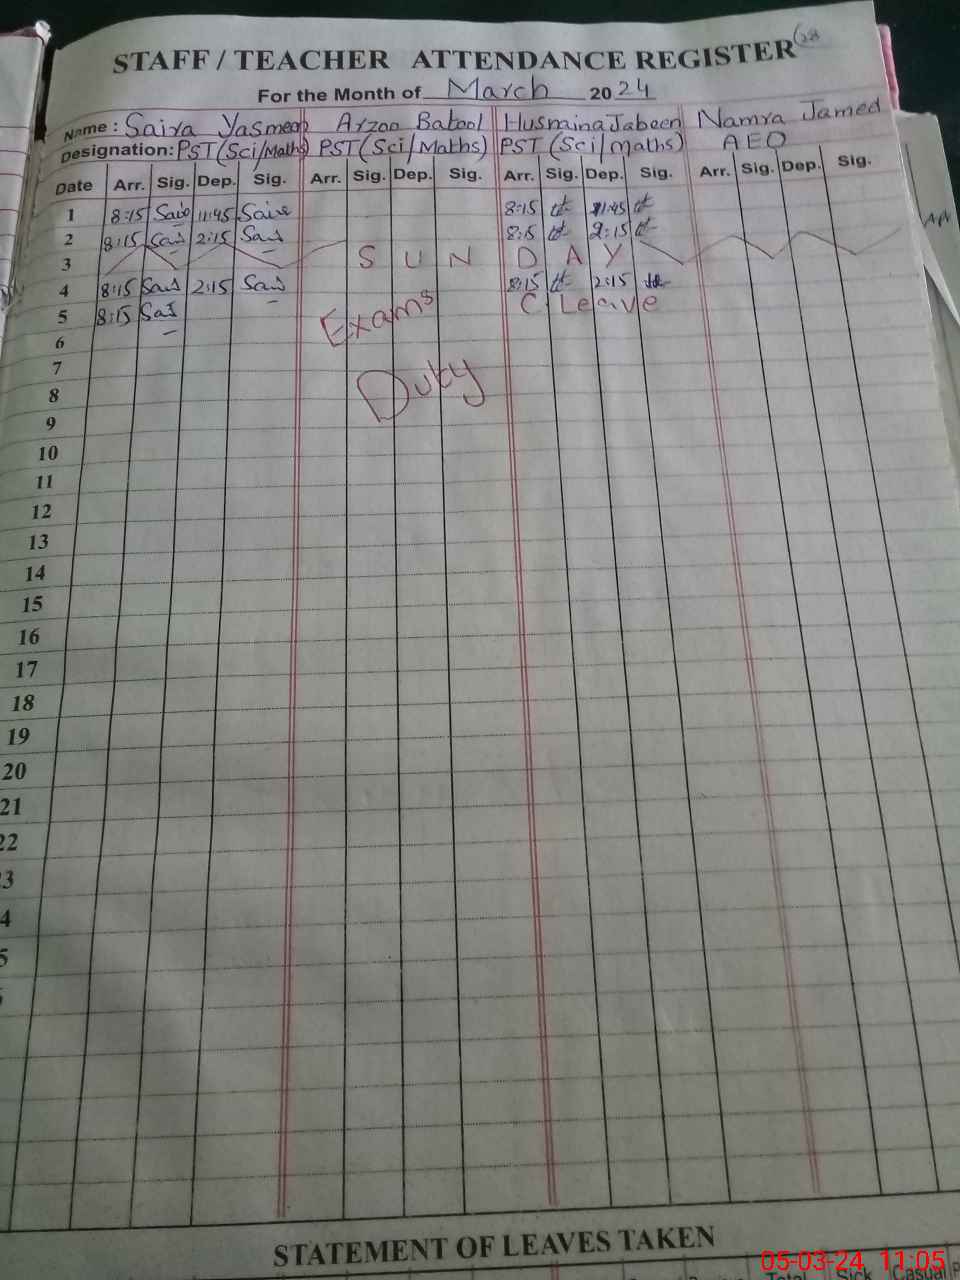 28
STAFF / TEACHER ATTENDANCE REGISTER
For the Month of March 2024
Name : Saira Yasmeen Arzoo Batool Husnaina Jabeen Namra Jamed
Designation: PST (Sci/Maths) PST (Sci/Maths) PST (Sci/maths) AEO
Date Arr. Sig. Dep. Sig. Arr. Sig. Dep. Sig. Arr. Sig. Dep. Sig. Arr. Sig. Dep. Sig.
1 8:15 11:45 8:15 11:45
2 8:15 2:15 8:15 2:15
3 S U N D A Y
4 8:15 2:15 8:15 2:15
5 8:15 Exams C Leave
6
7 Duty
8
9
10
11
12
13
14
15
16
17
18
19
20
21
22
23
4
5
STATEMENT OF LEAVES TAKEN
Total Sick Casual
05-03-24 11:05